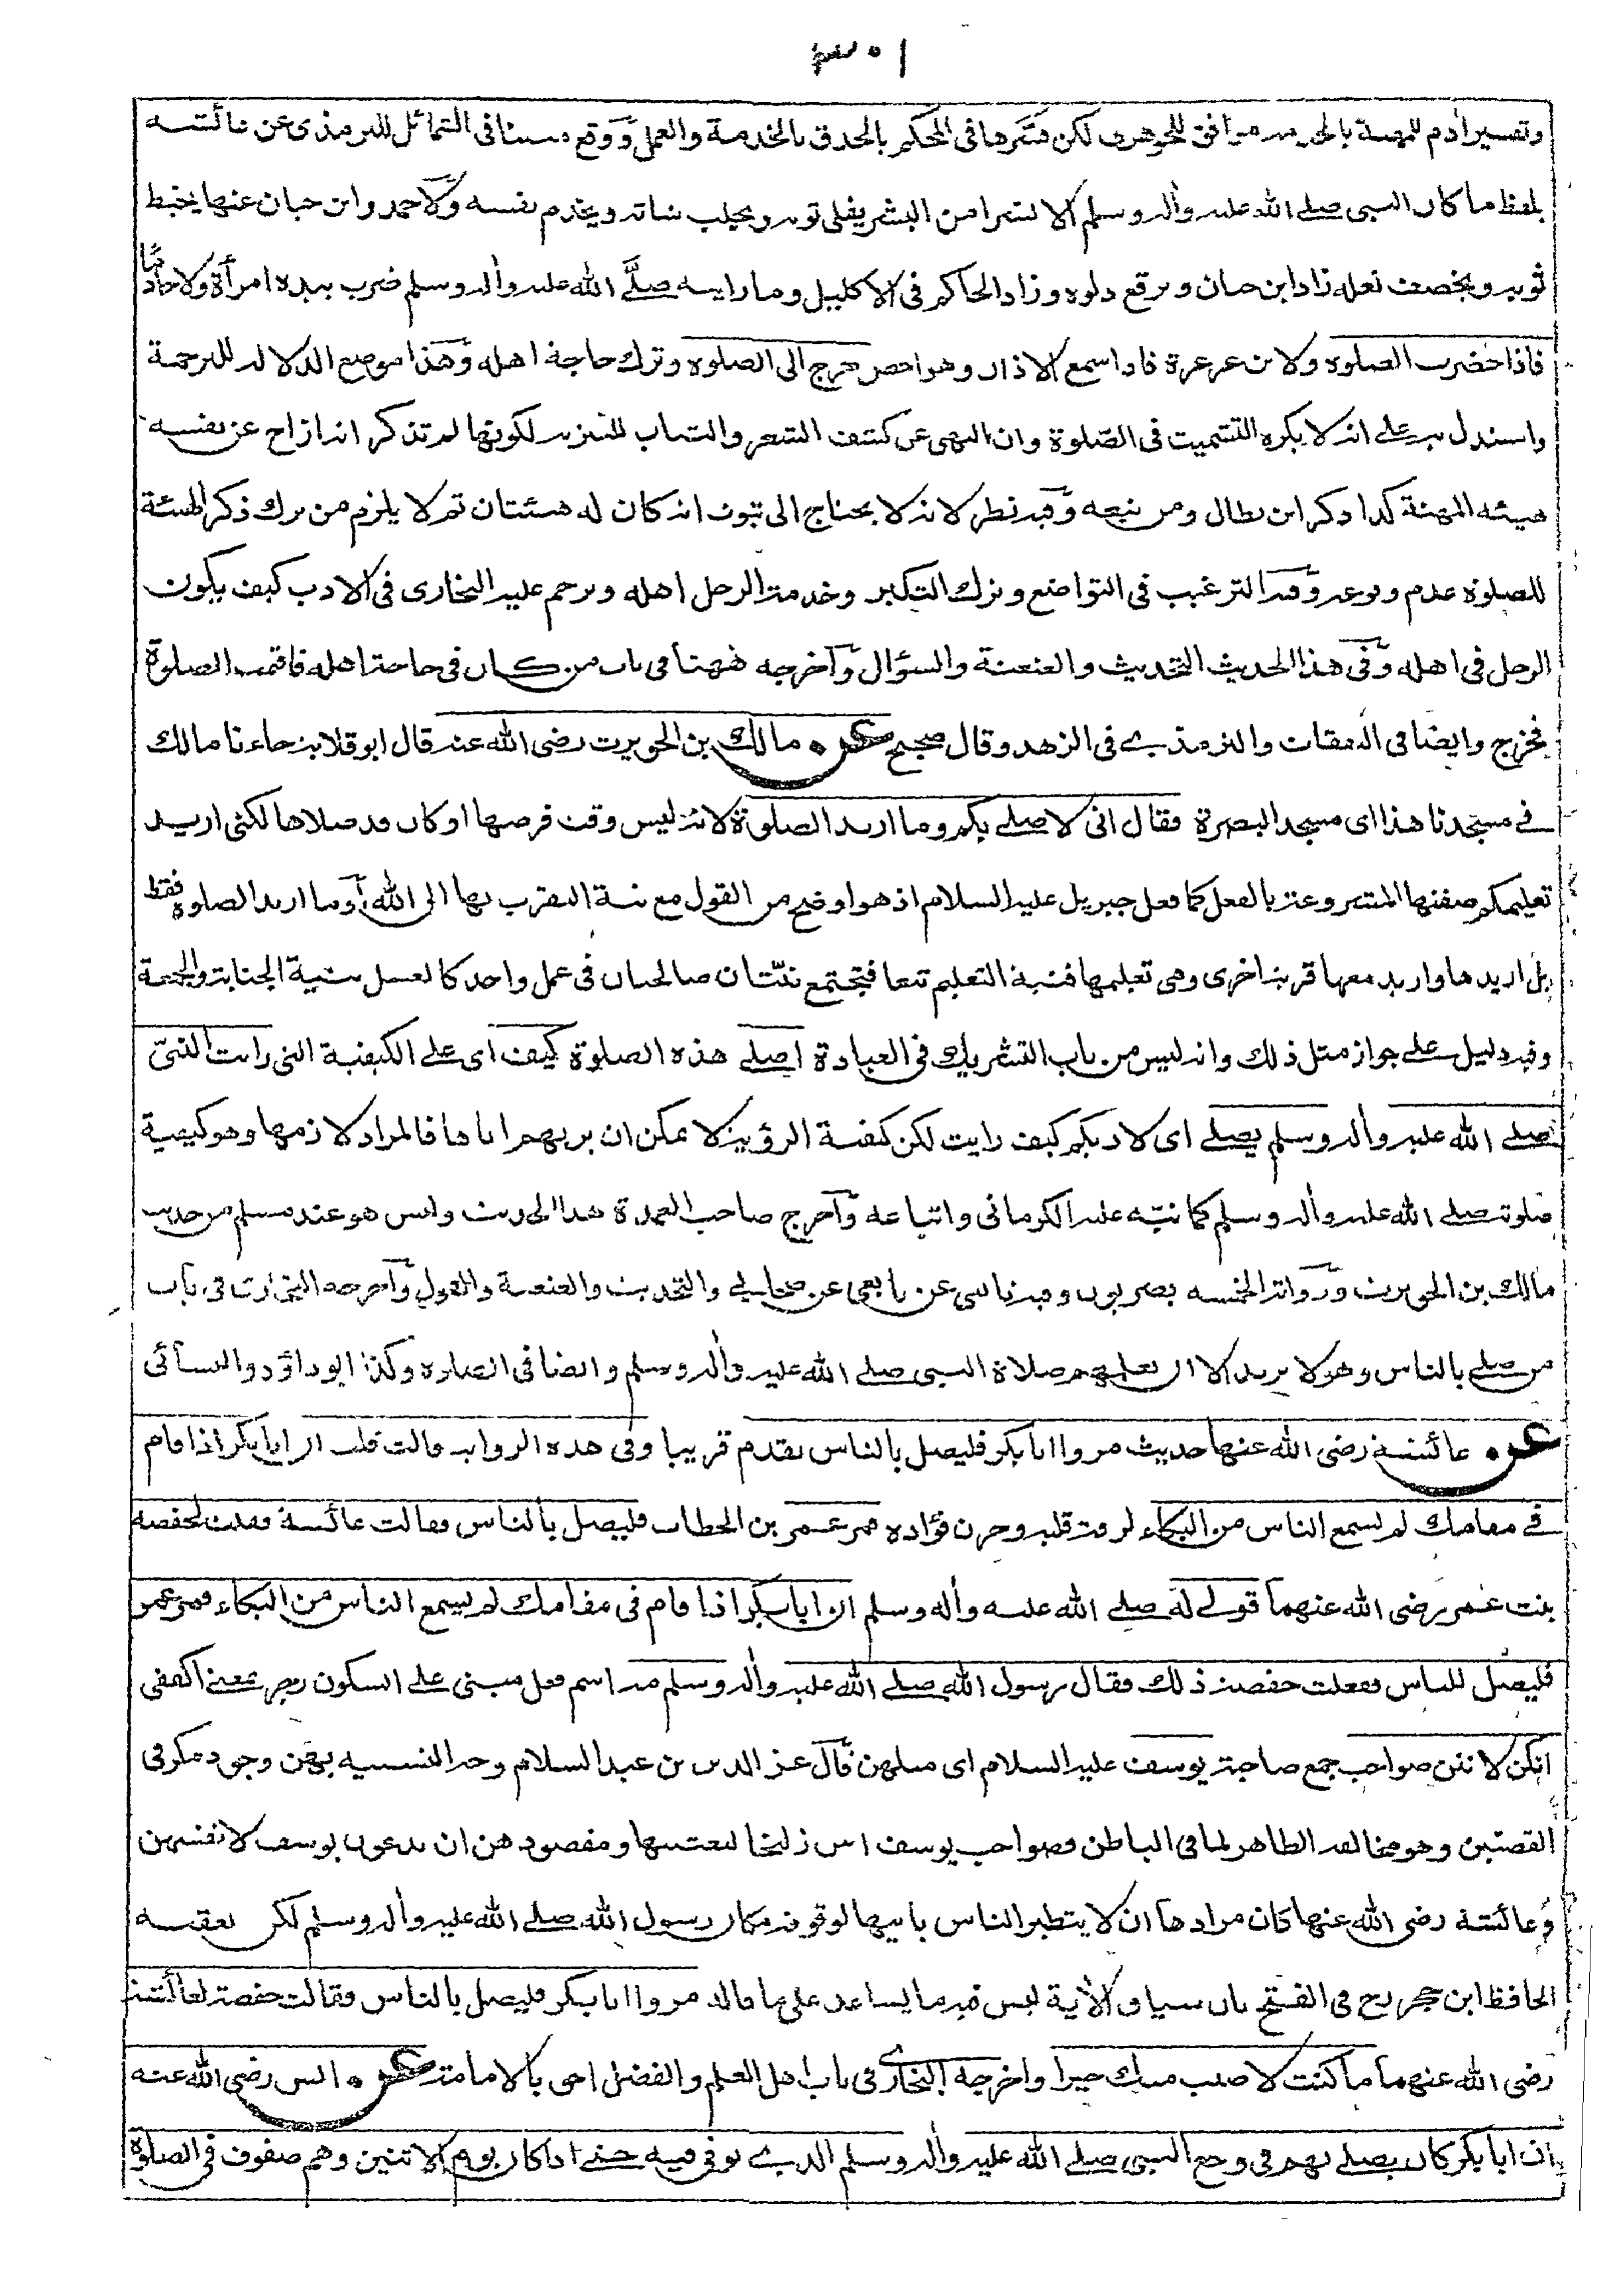 ٣٠١
وتفسير آدم للمهنة بالخدمة موافق للجوهري لكن فسرها في المحكم بالحذق بالخدمة والعمل ووقع مبينا في الشمائل للترمذي عن عائشة
بلفظ ما كان النبي صلى الله عليه وآله وسلم الا بشرا من البشر يفلي ثوبه ويحلب شاته ويخدم نفسه ولاحمد وابن حبان عنها يخيط
ثوبه ويخصف نعله زاد ابن حبان ويرقع دلوه وزاد الحاكم في الاكليل وما رايته صلى الله عليه وآله وسلم ضرب بيده امرأة ولا خادما
فاذا حضرت الصلوة ولابن عرعرة فاذا سمع الاذان وهو اخص خرج الى الصلوة وترك حاجة اهله وهذا موضع الدلالة للترجمة
واستدل به على انه لا يكره التشمير في الصلوة وان النهي عن كشف الشعر والثياب للتنزيه لكونها لم تذكر انه ازاح عن نفسه
هيئة المهنة كذا ذكر ابن بطال ومن تبعه وفيه نظر لانه لا يحتاج الى ثبوت انه كان له هيئتان ثم لا يلزم من ترك ذكر الهيئة
للصلوة عدم وقوعه وفيه الترغيب في التواضع وترك التكبر وخدمة الرجل اهله وترجم عليه البخاري في الادب كيف يكون
الرجل في اهله وفي هذا الحديث التحديث والعنعنة والسؤال وآخرجه ههنا في باب من كان في حاجة اهله فاقيمت الصلوة
فخرج وايضا في النفقات والترمذي في الزهد وقال صحيح عن مالك بن الحويرث رضي الله عنه قال ابو قلابة جاءنا مالك
في مسجدنا هذا اى مسجد البصرة فقال انى لاصلي بكم وما اريد الصلوة لانه ليس وقت فرضها او كان قد صلاها لكني اريد
تعليمكم صفتها المشروعة بالفعل كما فعل جبريل عليه السلام اذ هو اوضح من القول مع نية التقرب بها الى الله او ما اريد الصلوة فقط
بل اريدها واريد معها قربة اخرى وهي تعليمها فنية التعليم تبعا فتجتمع نيتان صالحتان في عمل واحد كالغسل بنية الجنابة والجمعة
وفيه دليل على جواز مثل ذلك وانه ليس من باب التشريك في العبادة اصلي هذه الصلوة كيف اى على الكيفية التي رايت النبي
صلى الله عليه وآله وسلم يصلي اى لاريكم كيف رايت لكن كيفية الرؤية لا يمكن ان يريهم اياها فالمراد لازمها وهو كيفية
صلوته صلى الله عليه وآله وسلم كما نبه عليه الكرماني واتباعه وآخرج صاحب العمدة هذا الحديث وليس هو عند مسلم من حديث
مالك بن الحويرث ورواته الخمسة بصريون وفيه تابعي عن تابعي عن صحابي والتحديث والعنعنة والقول وآخرجه البخاري في باب
من صلى بالناس وهو لا يريد الا ان يعلمهم صلاة النبي صلى الله عليه وآله وسلم وايضا في الصلوة وكذا ابو داؤد والنسائي
عن عائشة رضي الله عنها حديث مروا ابا بكر فليصل بالناس تقدم قريبا وفي هذه الرواية قالت قلت ان ابا بكر اذا قام
في مقامك لم يسمع الناس من البكاء لرقة قلبه وحزن فؤاده فمر عمر بن الخطاب فليصل بالناس فقالت عائشة فقلت لحفصة
بنت عمر رضي الله عنهما قولي له صلى الله عليه وآله وسلم ان ابا بكر اذا قام في مقامك لم يسمع الناس من البكاء فمر عمر
فليصل للناس ففعلت حفصة ذلك فقال رسول الله صلى الله عليه وآله وسلم مه اسم فعل مبني على السكون زجر بمعنى اكففي
انكن لانتن صواحب جمع صاحبة يوسف عليه السلام اى مثلهن قال عز الدين بن عبد السلام وجه التشبيه بهن وجود مكر في
القصتين وهو مخالفة الظاهر لما في الباطن فصواحب يوسف اتين زليخا ليعتبنها ومقصودهن ان يدعون يوسف لانفسهن
وعائشة رضي الله عنها كان مرادها ان لا يتطير الناس بابيها لوقوفه مكان رسول الله صلى الله عليه وآله وسلم لكن تعقبه
الحافظ ابن حجر رح في الفتح بان سياق الآية ليس فيه ما يساعد على ما قاله مروا ابا بكر فليصل بالناس فقالت حفصة لعائشة
رضي الله عنهما ما كنت لاصيب منك خيرا واخرجه البخاري في باب اهل العلم والفضل احق بالامامة عن انس رضي الله عنه
ان ابا بكر كان يصلي بهم في وجع النبي صلى الله عليه وآله وسلم الذي توفي فيه حتى اذا كان يوم الاثنين وهم صفوف في الصلوة